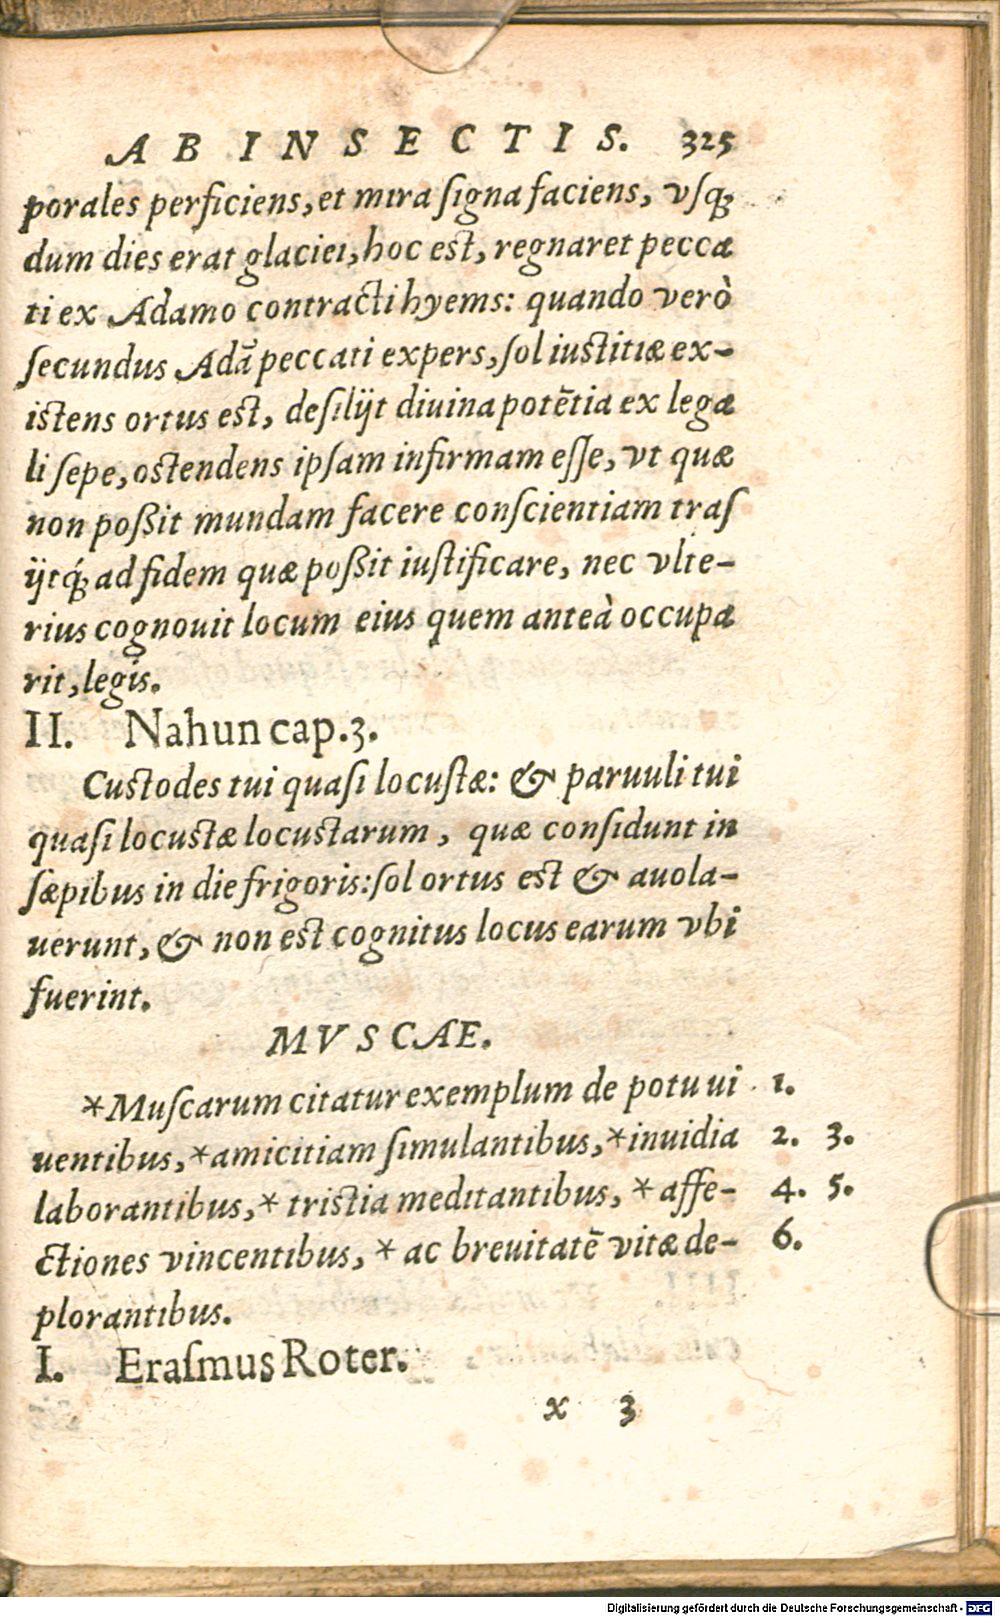 AB INSECTIS. 325
porales perficiens, et mira ſigna faciens, vſq́;
dum dies erat glaciei, hoc eſt, regnaret pecca
ti ex Adamo contracti hyems: quando verò
ſecundus Adā peccati expers, ſol iuſtitiæ ex-
iſtens ortus eſt, deſilijt diuina potētia ex lega
li ſepe, oſtendens ipſam infirmam eſſe, vt quæ
non poßit mundam facere conſcientiam traſ
ijtq́; ad fidem quæ poßit iuſtificare, nec vlte-
rius cognouit locum eius quem anteà occupa
rit, legis.
II. Nahun cap.3.
Cuſtodes tui quaſi locuſtæ: & paruuli tui
quaſi locuſtæ locuſtarum, quæ conſidunt in
ſæpibus in die frigoris: ſol ortus eſt & auola-
uerunt, & non eſt cognitus locus earum vbi
fuerint.
MVSCAE.
*Muſcarum citatur exemplum de potu ui 1.
uentibus, *amicitiam ſimulantibus, *inuidia 2. 3.
laborantibus, * triſtia meditantibus, * affe- 4. 5.
ctiones vincentibus, * ac breuitatē vitæ de- 6.
plorantibus.
I. Eraſmus Roter.
x 3
Digitalisierung gefördert durch die Deutsche Forschungsgemeinschaft - DFG